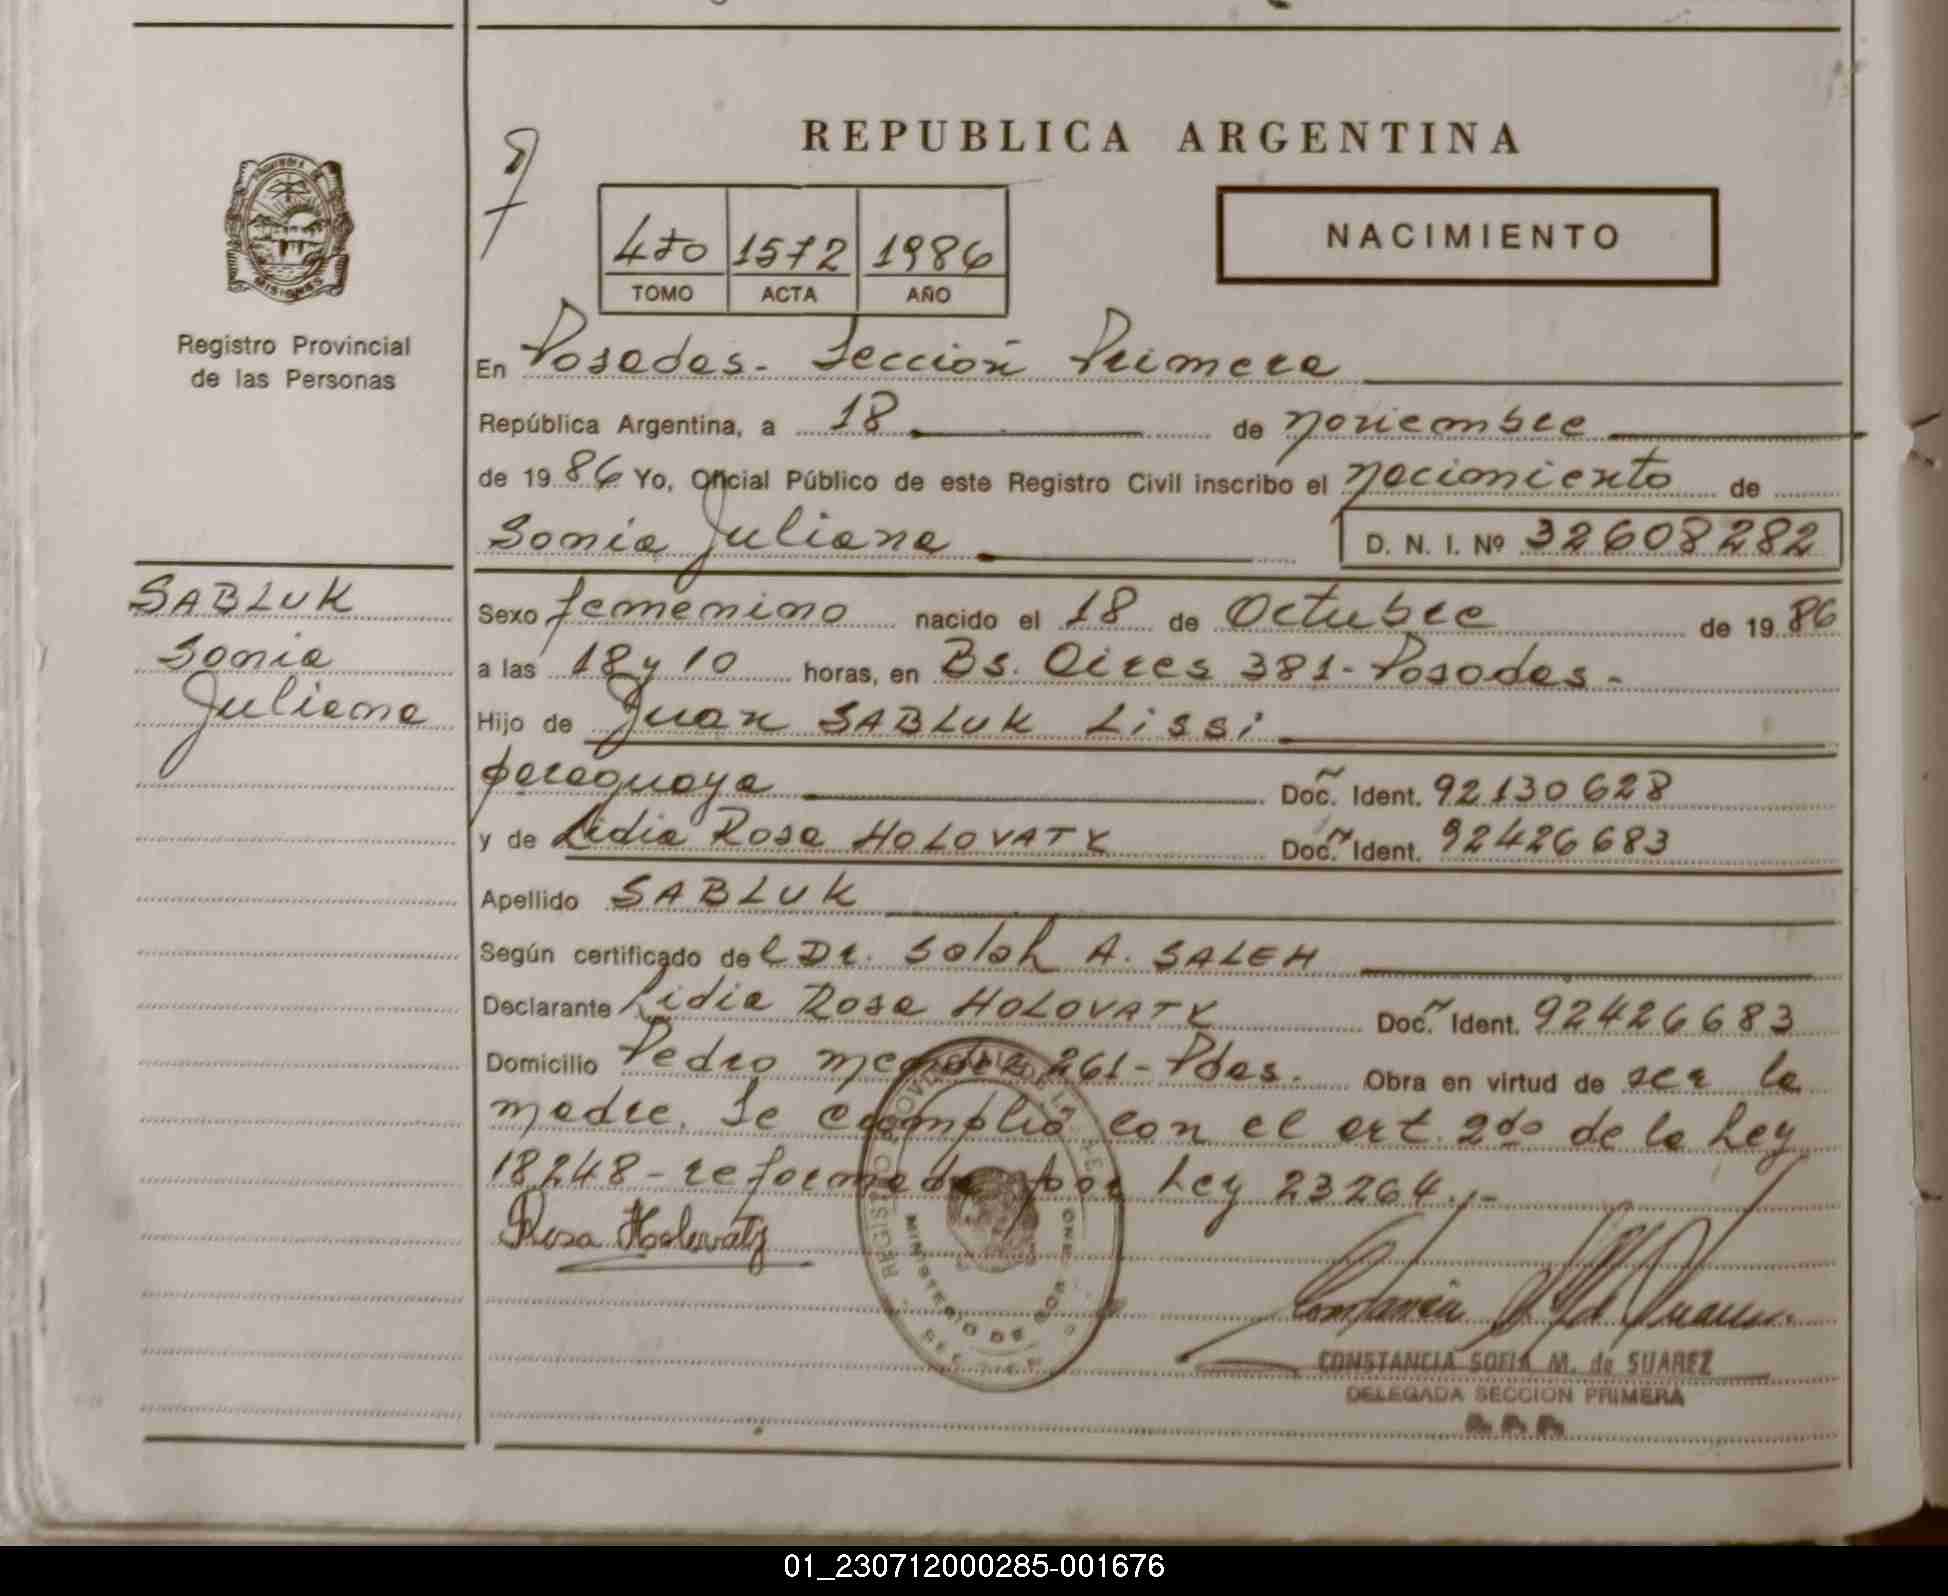 REPUBLICA ARGENTINA
NACIMIENTO
4to 1572 1986
TOMO ACTA AÑO
MISIONES
Registro Provincial
de las Personas
En Posadas - Sección Primera
República Argentina, a 18 de noviembre
de 1986 Yo, Oficial Público de este Registro Civil inscribo el nacimiento de
Sonia Juliana D. N. I. Nº 32608282
SABLUK
Sonia
Juliana
Sexo femenino nacido el 18 de Octubre de 1986
a las 18 y 10 horas, en Bs. Aires 381 - Posadas -
Hijo de Juan SABLUK Lissi
paraguaya Doc. Ident. 92130628
y de Lidia Rosa HOLOVATY Doc. Ident. 92426683
Apellido SABLUK
Según certificado del Dr. Salah A. SALEH
Declarante Lidia Rosa HOLOVATY Doc. Ident. 92426683
Domicilio Pedro Mendez 261 - Pdas. Obra en virtud de ser la
madre. Se cumplió con el art. 2do de la Ley
18248 - reformada por Ley 23264.-
Rosa Holovaty
MINISTERIO DE
CONSTANCIA SOFIA M. de SUAREZ
DELEGADA SECCION PRIMERA
01_230712000285-001676